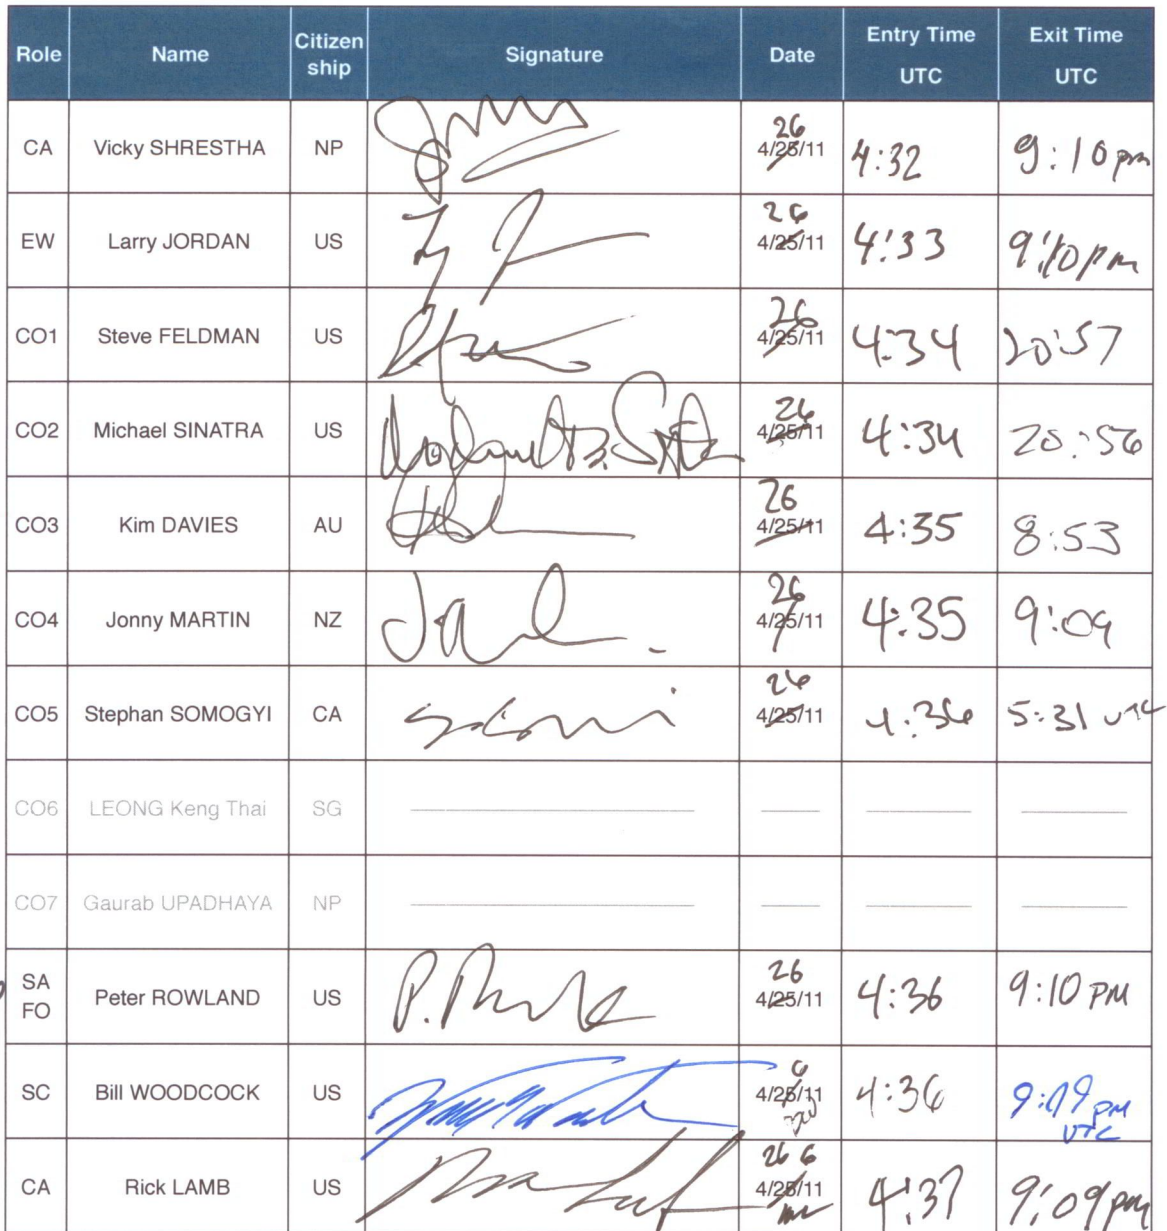 Role Name Citizen ship Signature Date Entry Time UTC Exit Time UTC
CA Vicky SHRESTHA NP 26 4/25/11 4:32 9:10pm
EW Larry JORDAN US 26 4/25/11 4:33 9:10pm
CO1 Steve FELDMAN US 26 4/25/11 4:34 20:57
CO2 Michael SINATRA US 26 4/25/11 4:34 20:56
CO3 Kim DAVIES AU 26 4/25/11 4:35 8:53
CO4 Jonny MARTIN NZ 26 4/25/11 4:35 9:09
CO5 Stephan SOMOGYI CA 26 4/25/11 4:36 5:31 UTC
CO6 LEONG Keng Thai SG
CO7 Gaurab UPADHAYA NP
SA FO Peter ROWLAND US 26 4/25/11 4:36 9:10 PM
SC Bill WOODCOCK US 6 4/25/11 4:36 PM UTC
CA Rick LAMB US 26 6 4/25/11 4:37 9:09pm